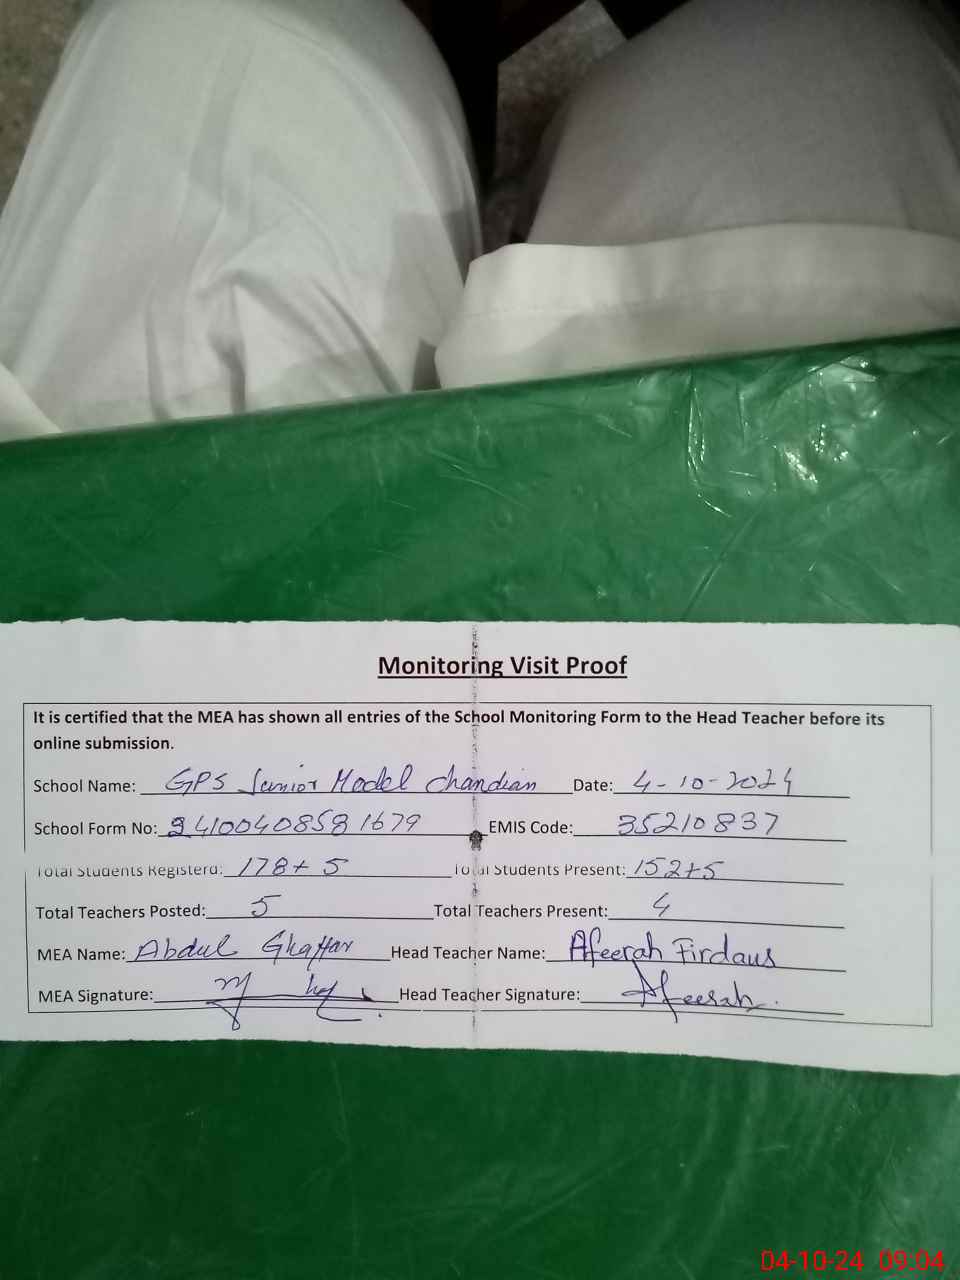 Monitoring Visit Proof
It is certified that the MEA has shown all entries of the School Monitoring Form to the Head Teacher before its
online submission.
School Name: GPS Junior Model Chandian Date: 4-10-2024
School Form No: 24100408581679 EMIS Code: 35210837
Total Students Registerd: 178+5 Total Students Present: 152+5
Total Teachers Posted: 5 Total Teachers Present: 4
MEA Name: Abdul Ghaffar Head Teacher Name: Afeerah Firdaus
MEA Signature: Head Teacher Signature: Afeerah
04-10-24 09:04